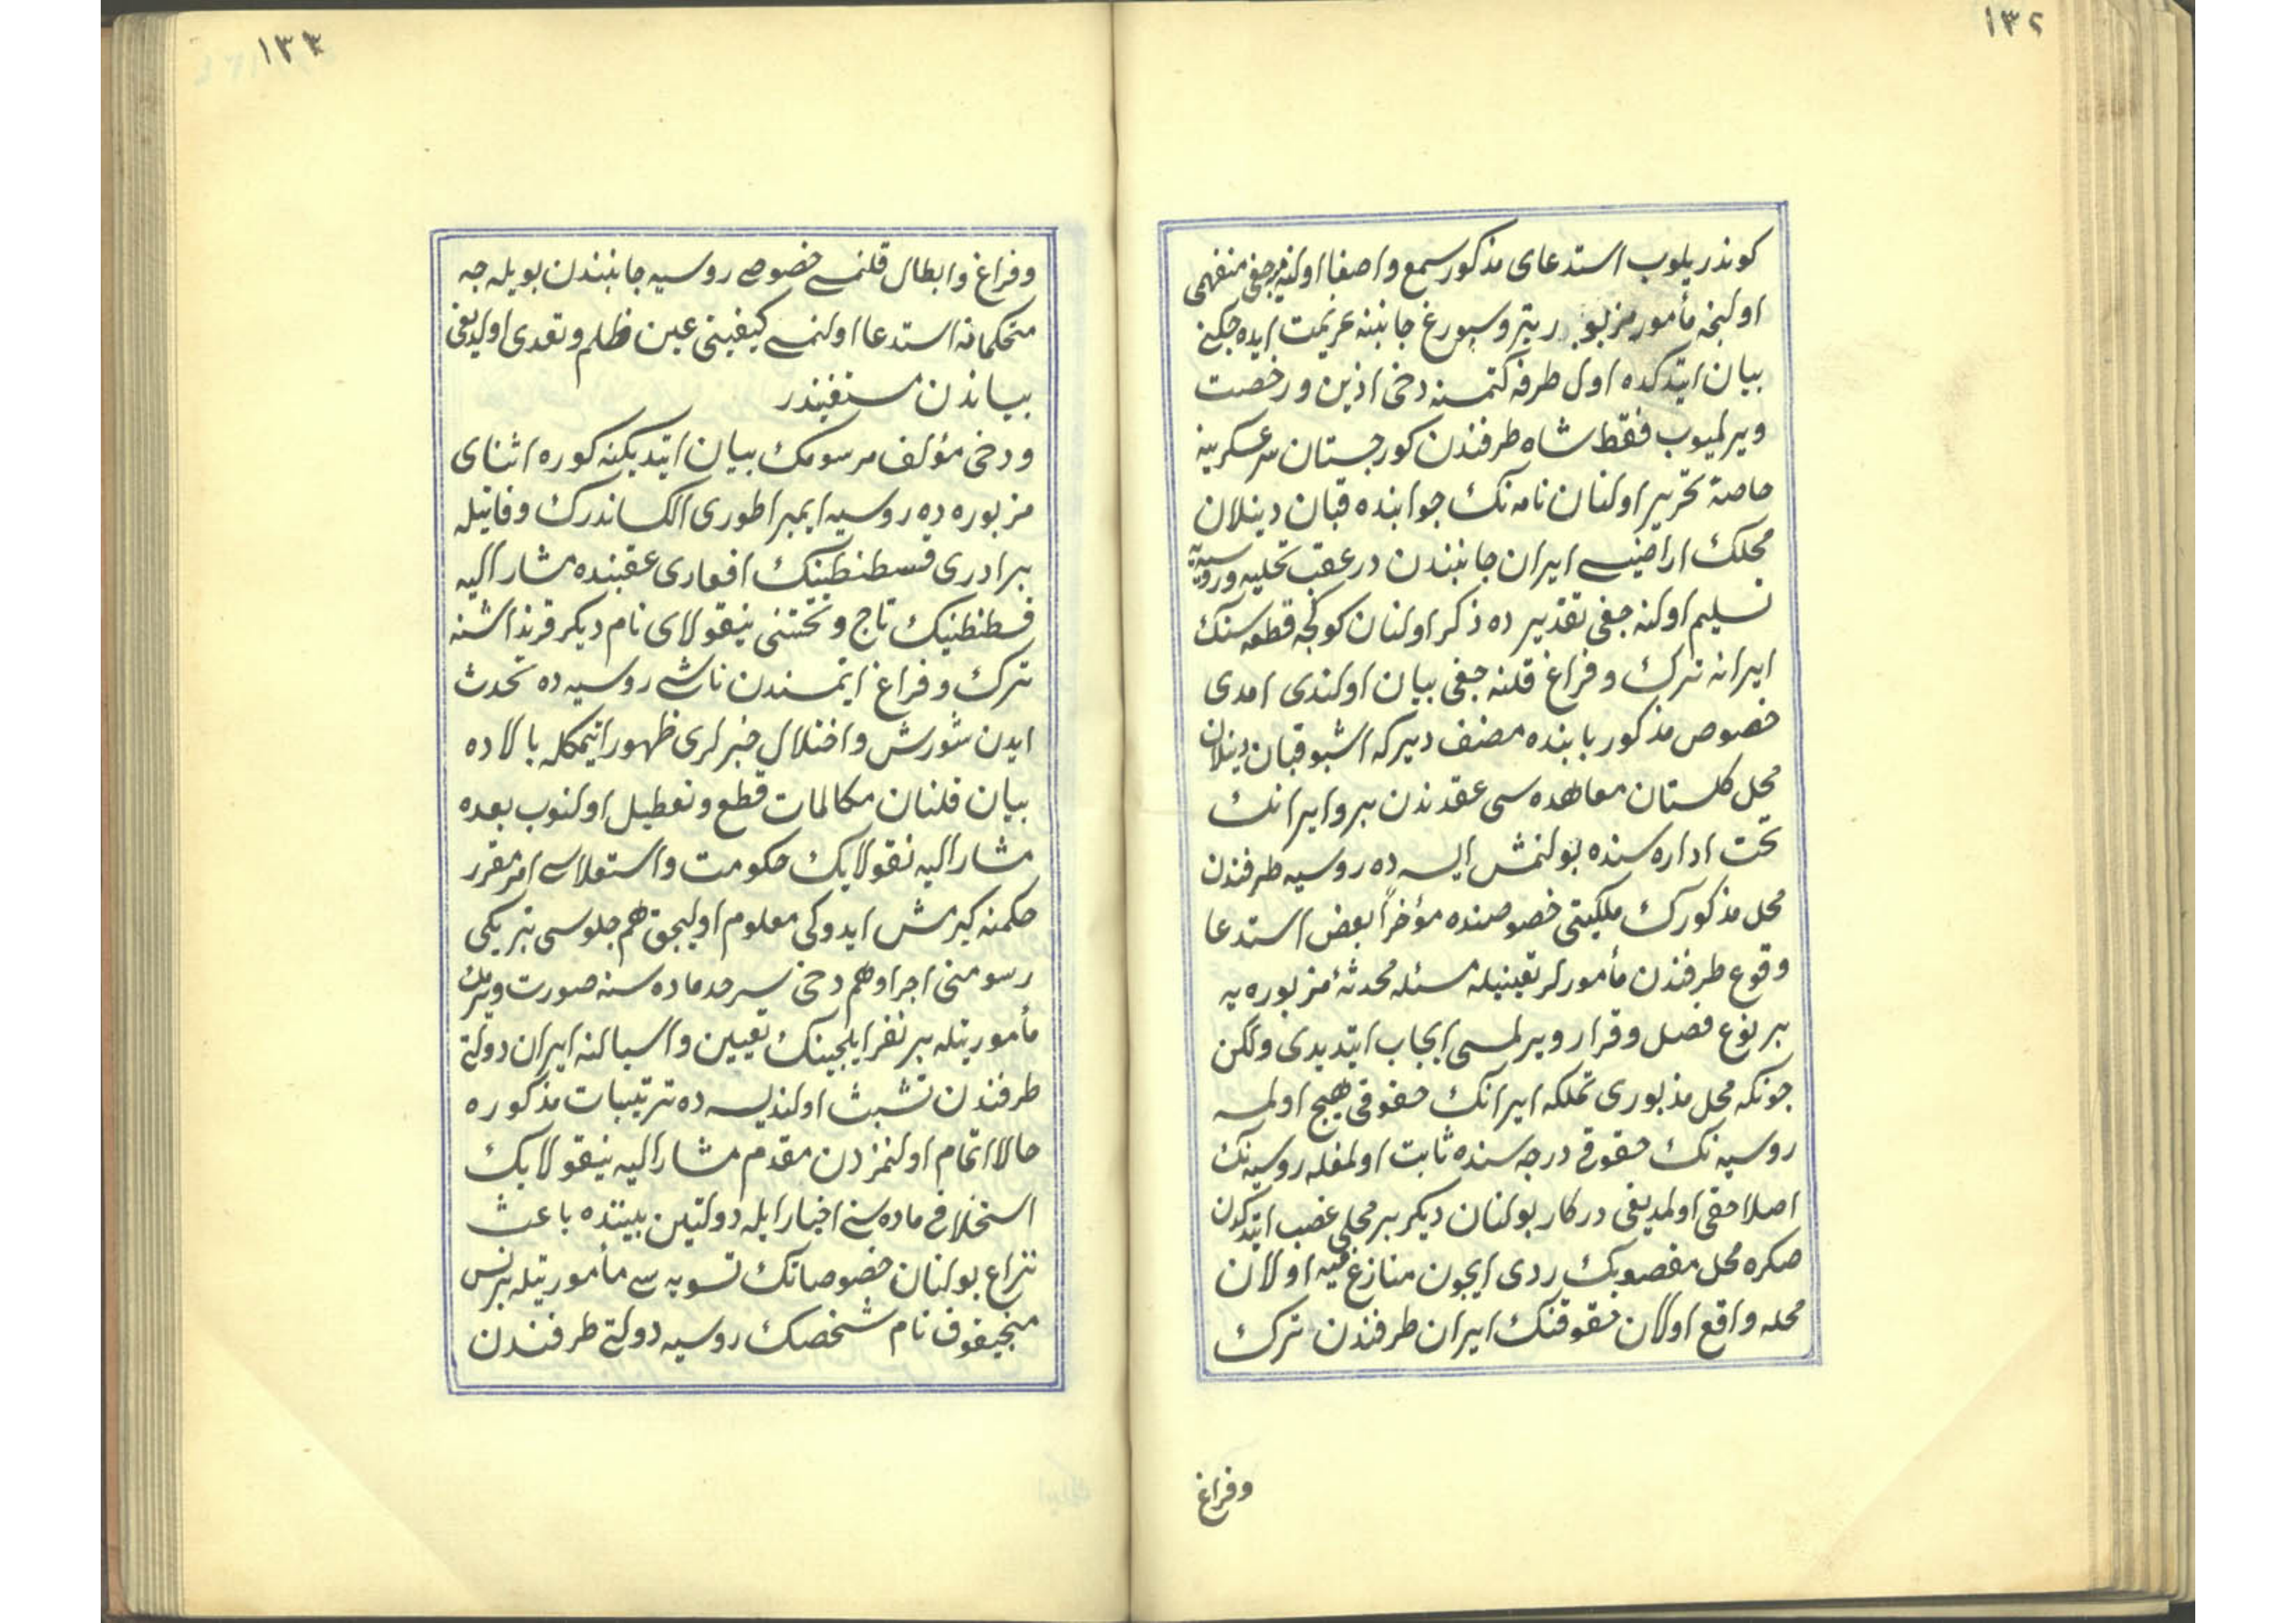 ١٣٢
كوندريلوب استدعای مذكور سمع واصغا اولنه‌ميه‌جغی منفهمی
اولنجه مأمور مزبور پتروسبورغ جانبنه عزيمت ايده‌جكنی
بيان ايتدكده اول طرفه كتمسنه دخی اذن ورخصت
ويرلميوب فقط شاه طرفندن كورجستان سرعسكرينه
خاصة تحرير اولنان نامه‌نك جوابنده قبان دينلان
محلك اراضيسی ايران جانبندن درعقب تخليه وروسيه‌يه
تسليم اولنه‌جغی تقديرده ذكر اولنان كوكجه قطعه‌سنك
ايرانه ترك وفراغ قلنه‌جغی بيان اولندی امدی
خصوص مذكور بابنده مصنف ديركه اشبو قبان دينلان
محل كلستان معاهده‌سی عقدندن برو ايرانك
تحت اداره‌سنده بولنمش ايسه‌ده روسيه طرفندن
محل مذكورك ملكيتی خصوصنده مؤخراً بعض استدعا
وقوع طرفندن مأمورلر تعيينيله مسئله محدثهٔ مزبوره‌يه
بر نوع فصل وقرار ويرلمسی ايجاب ايتديدی ولكن
چونكه محل مذبوری تملكه ايرانك حقوقی هيچ اولمسه
روسيه‌نك حقوقی درجه‌سنده ثابت اولمغله روسيه‌نك
اصلا حقی اولمديغی دركار بولنان ديكر بر محلی غصب ايتدكدن
صكره محل مغصوبك ردی ايچون منازع فيه اولان
محله واقع اولان حقوقنك ايران طرفندن ترك
وفراغ
١٣٣
وفراغ وابطال قلنمسی خصوصی روسيه جانبندن بويله‌جه
متحكمانه استدعا اولنمسی كيفيتی عين ظلم وتعدی اولديغی
بياندن مستغنيدر
ودخی مؤلف مرسومك بيان ايتديكنه كوره اثنای
مزبوره‌ده روسيه ايمپراطوری الكساندرك وفاتيله
برادری قسطنطينك افعاری عقبنده مشار اليه
قسطنطينك تاج وتختنی نيقولای نام ديكر قرنداشنه
ترك وفراغ ايتمسندن ناشی روسيه‌ده تحدث
ايدن شورش واختلال خبرلری ظهور ايتمكله بالاده
بيان قلنان مكالمات قطع وتعطيل اولنوب بعده
مشار اليه نقولايك حكومت واستعلاسی امر مقرر
حكمنه كيرمش ايدوكی معلوم اوليجق هم جلوسی تبريكی
رسومنی اجرا وهم دخی سرحد ماده‌سنه صورت ويرمك
مأموريتله بر نفر ايلچينك تعيين واسبالنه ايران دولتی
طرفندن تشبث اولنديسه‌ده ترتيبات مذكوره
حالا اتمام اولنمزدن مقدم مشار اليه نيقولايك
استخلافی ماده‌سنی اخبار ايله دولتين بيننده باعث
نزاع بولنان خصوصاتك تسويه‌سی مأموريتله پرنس
منچيقوف نام شخصك روسيه دولتی طرفندن